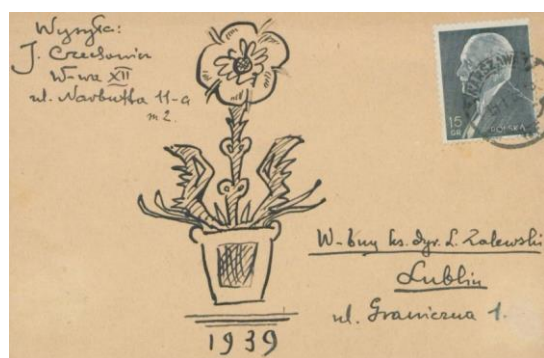 Wysyła:
J. Czechowicz
W-wa XII
ul. Narbutta 11-a
m 2.
WARSZAWA
15
GR
POLSKA
W-bny ks. dyr. L. Zalewski
Lublin
ul. Graniczna 1.
1939